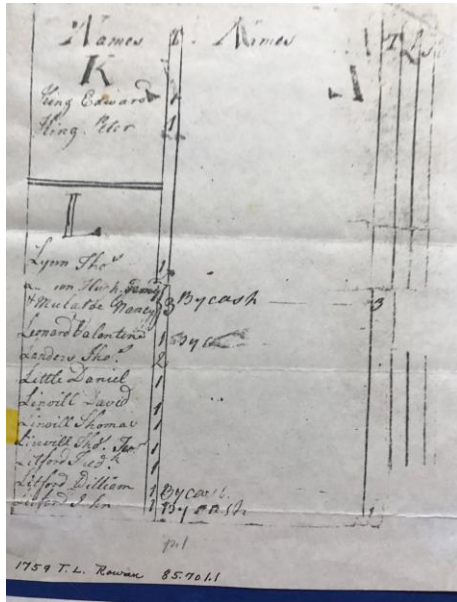 Names T. Names T L S
K
King Edward 1
King Peter 1
L
Lynn Thoˢ 1
Hugh
& Mulatde Nancy 3 By cash 3
Leonard Valentine 1 By c
Landers Thoˢ 2
Little Daniel 1
Linvill David 1
Linvill Thomas 1
Linvill Thoˢ Junʳ 1
Litford Fredᵏ 1
Litford William 1 By cash.
Litford John 1 By cash 1
p.1
1759 T. L. Rowan 85.701.1